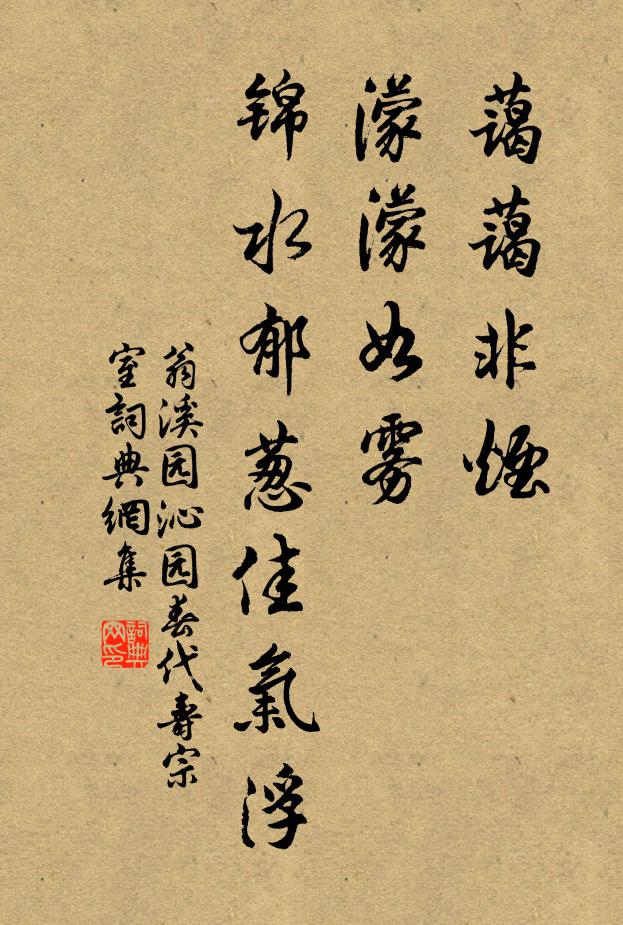 藹藹非煙
濛濛如雾
锦水郁葱佳氣浮
翁溪园沁园春代壽宗
室詞典網集
詞典
网印